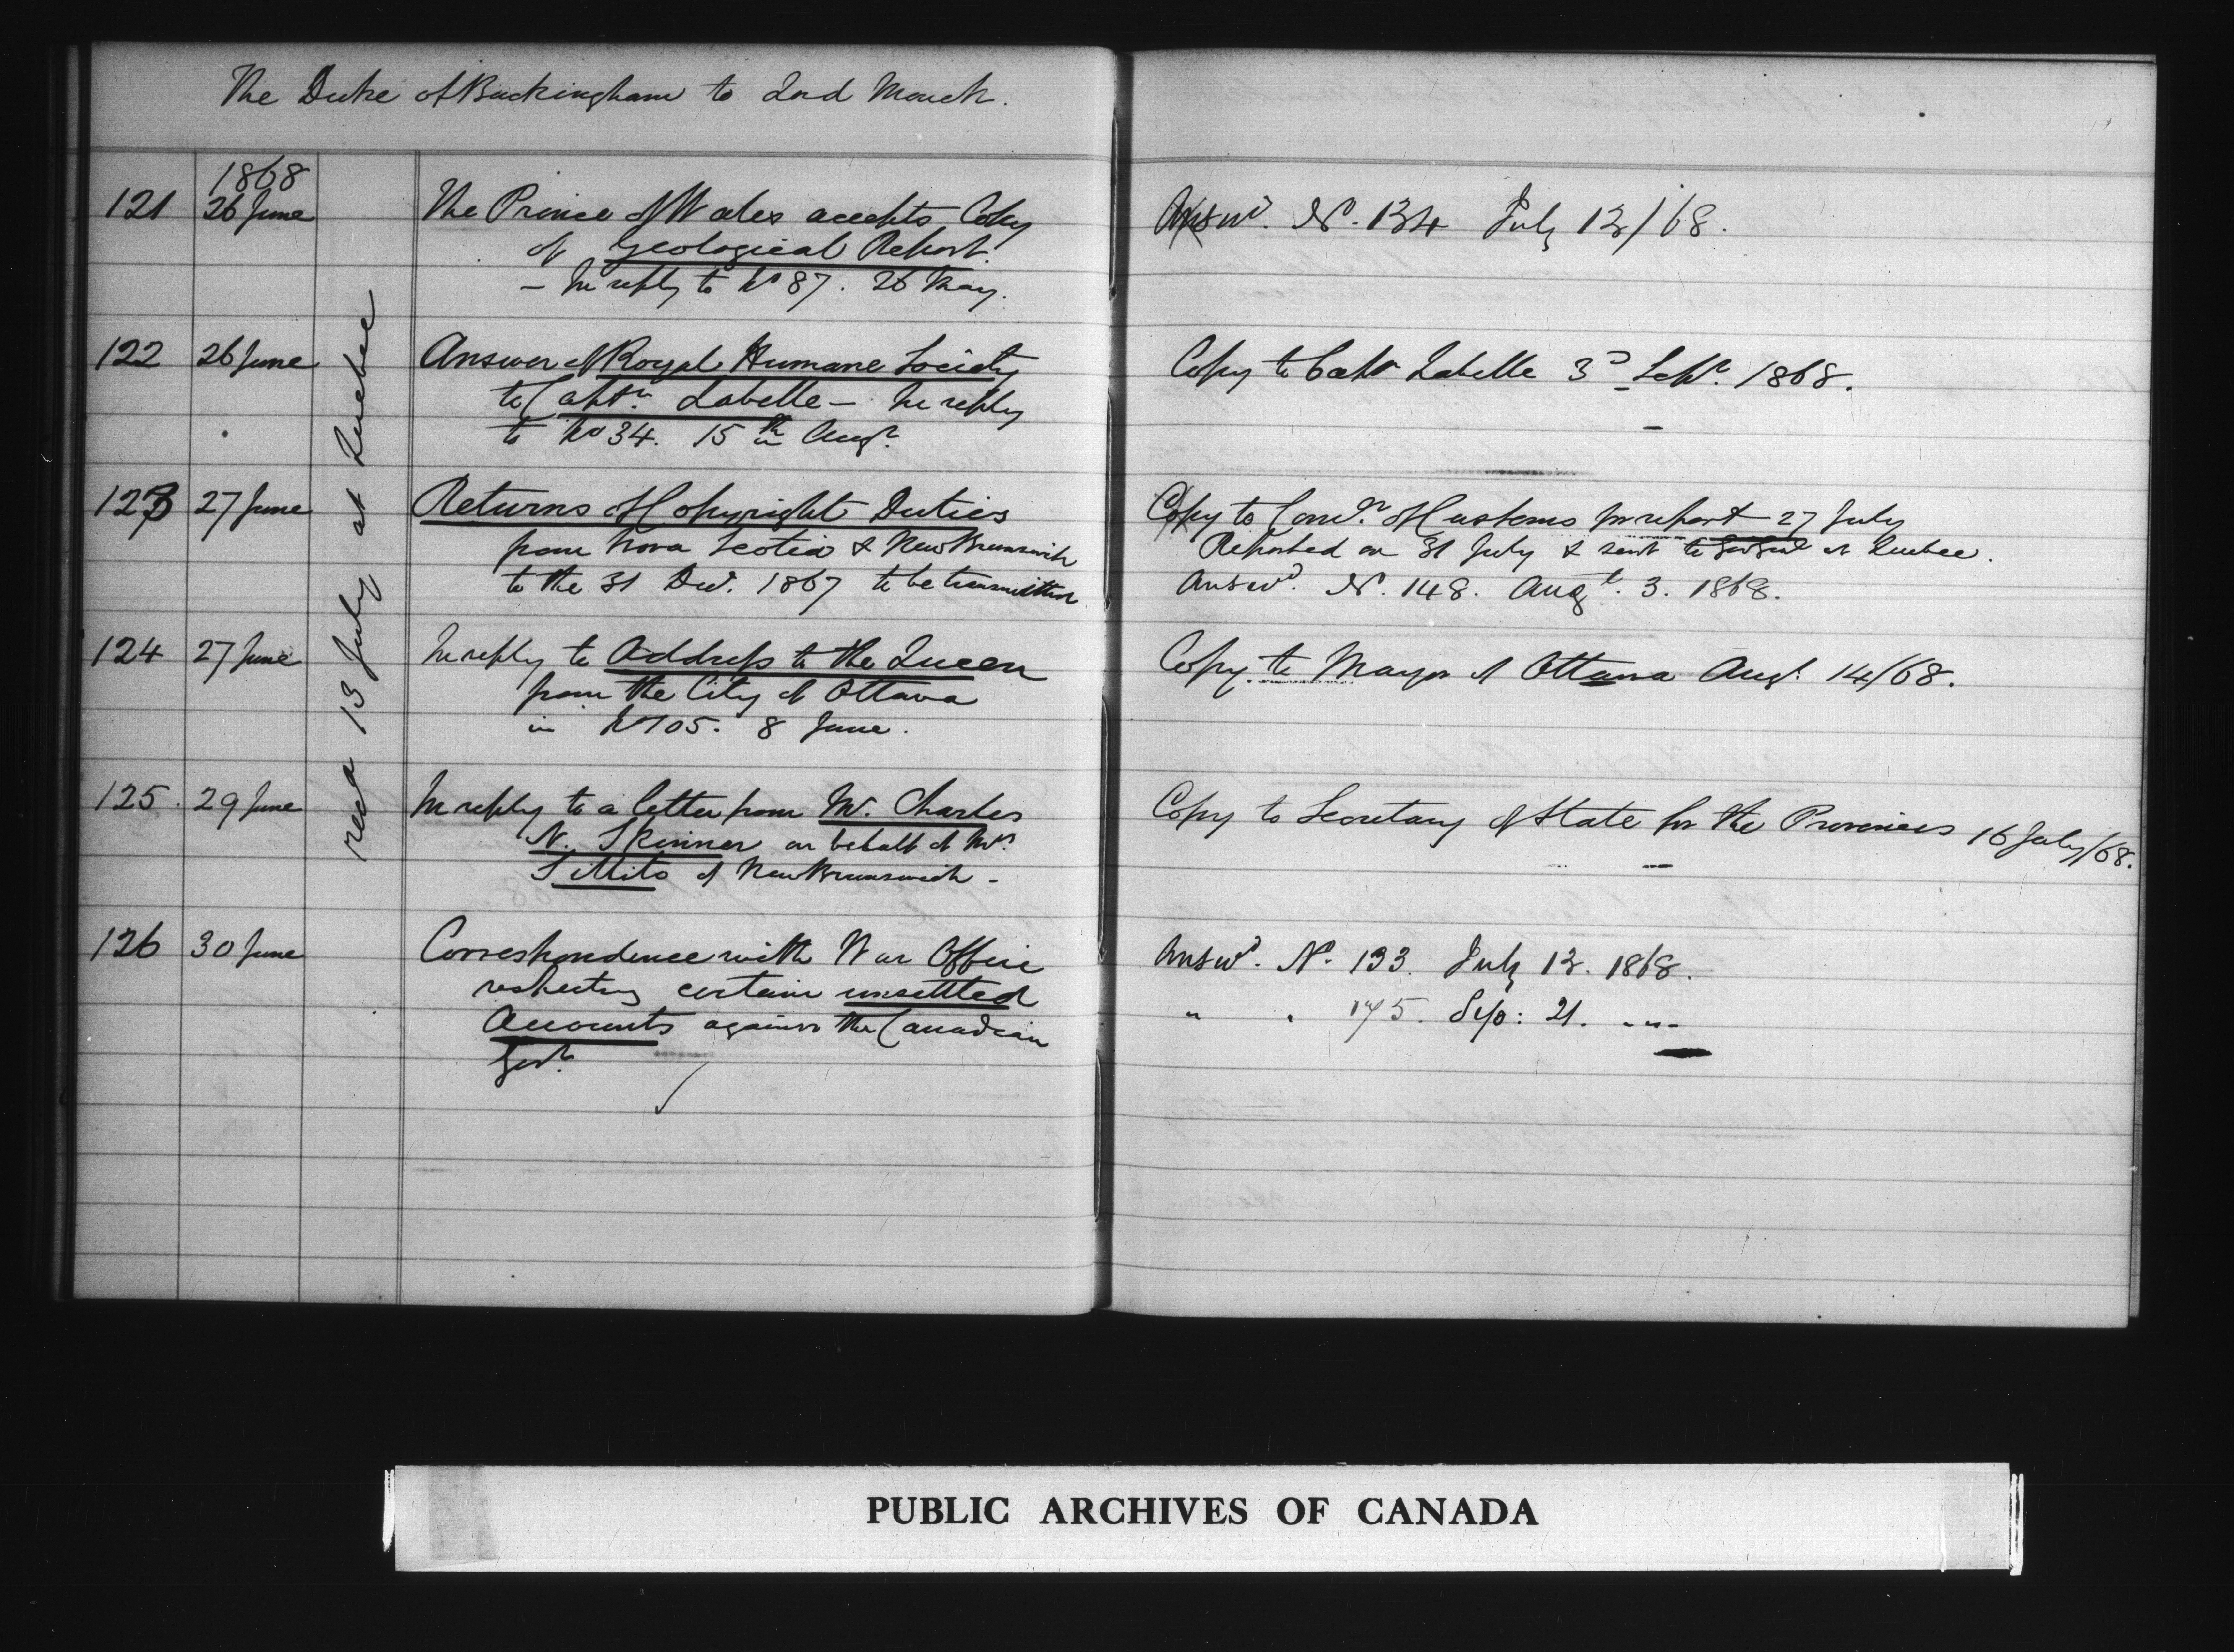 The Duke of Buckingham to Lord Monck.
1868
121 26 June The Prince of Wales accepts Copy
of Geological Report.
- In reply to No 87. 26 May.
Answd. No. 134 July 13/68.
122 26 June Answer of Royal Humane Society
to Captn. Labelle - In reply
to No 34. 15th Augt.
Copy to Captn Labelle 3d Sept. 1868.
123 27 June Returns of Copyright Duties
from Nova Scotia & New Brunswick
to the 31 Decr. 1867 to be transmitted
Copy to Comr. of Customs for report 27 July
Reported on 31 July & sent to Gov Genl at Quebec.
Answd. No. 148. Augt. 3. 1868.
124 27 June In reply to Address to the Queen
from the City of Ottawa
in No 105. 8 June.
Copy to Mayor of Ottawa Augt. 14/68.
125. 29 June In reply to a letter from Mr. Charles
N. Skinner on behalf of Mrs.
of New Brunswick -
Copy to Secretary of State for the Provinces 16 July/68.
126 30 June Correspondence with War Office
respecting certain unsettled
Accounts against the Canadian
Govt.
Answd. No. 133. July 13. 1868.
" . 175. Sep: 21. "
recd 13 July at Quebec
PUBLIC ARCHIVES OF CANADA